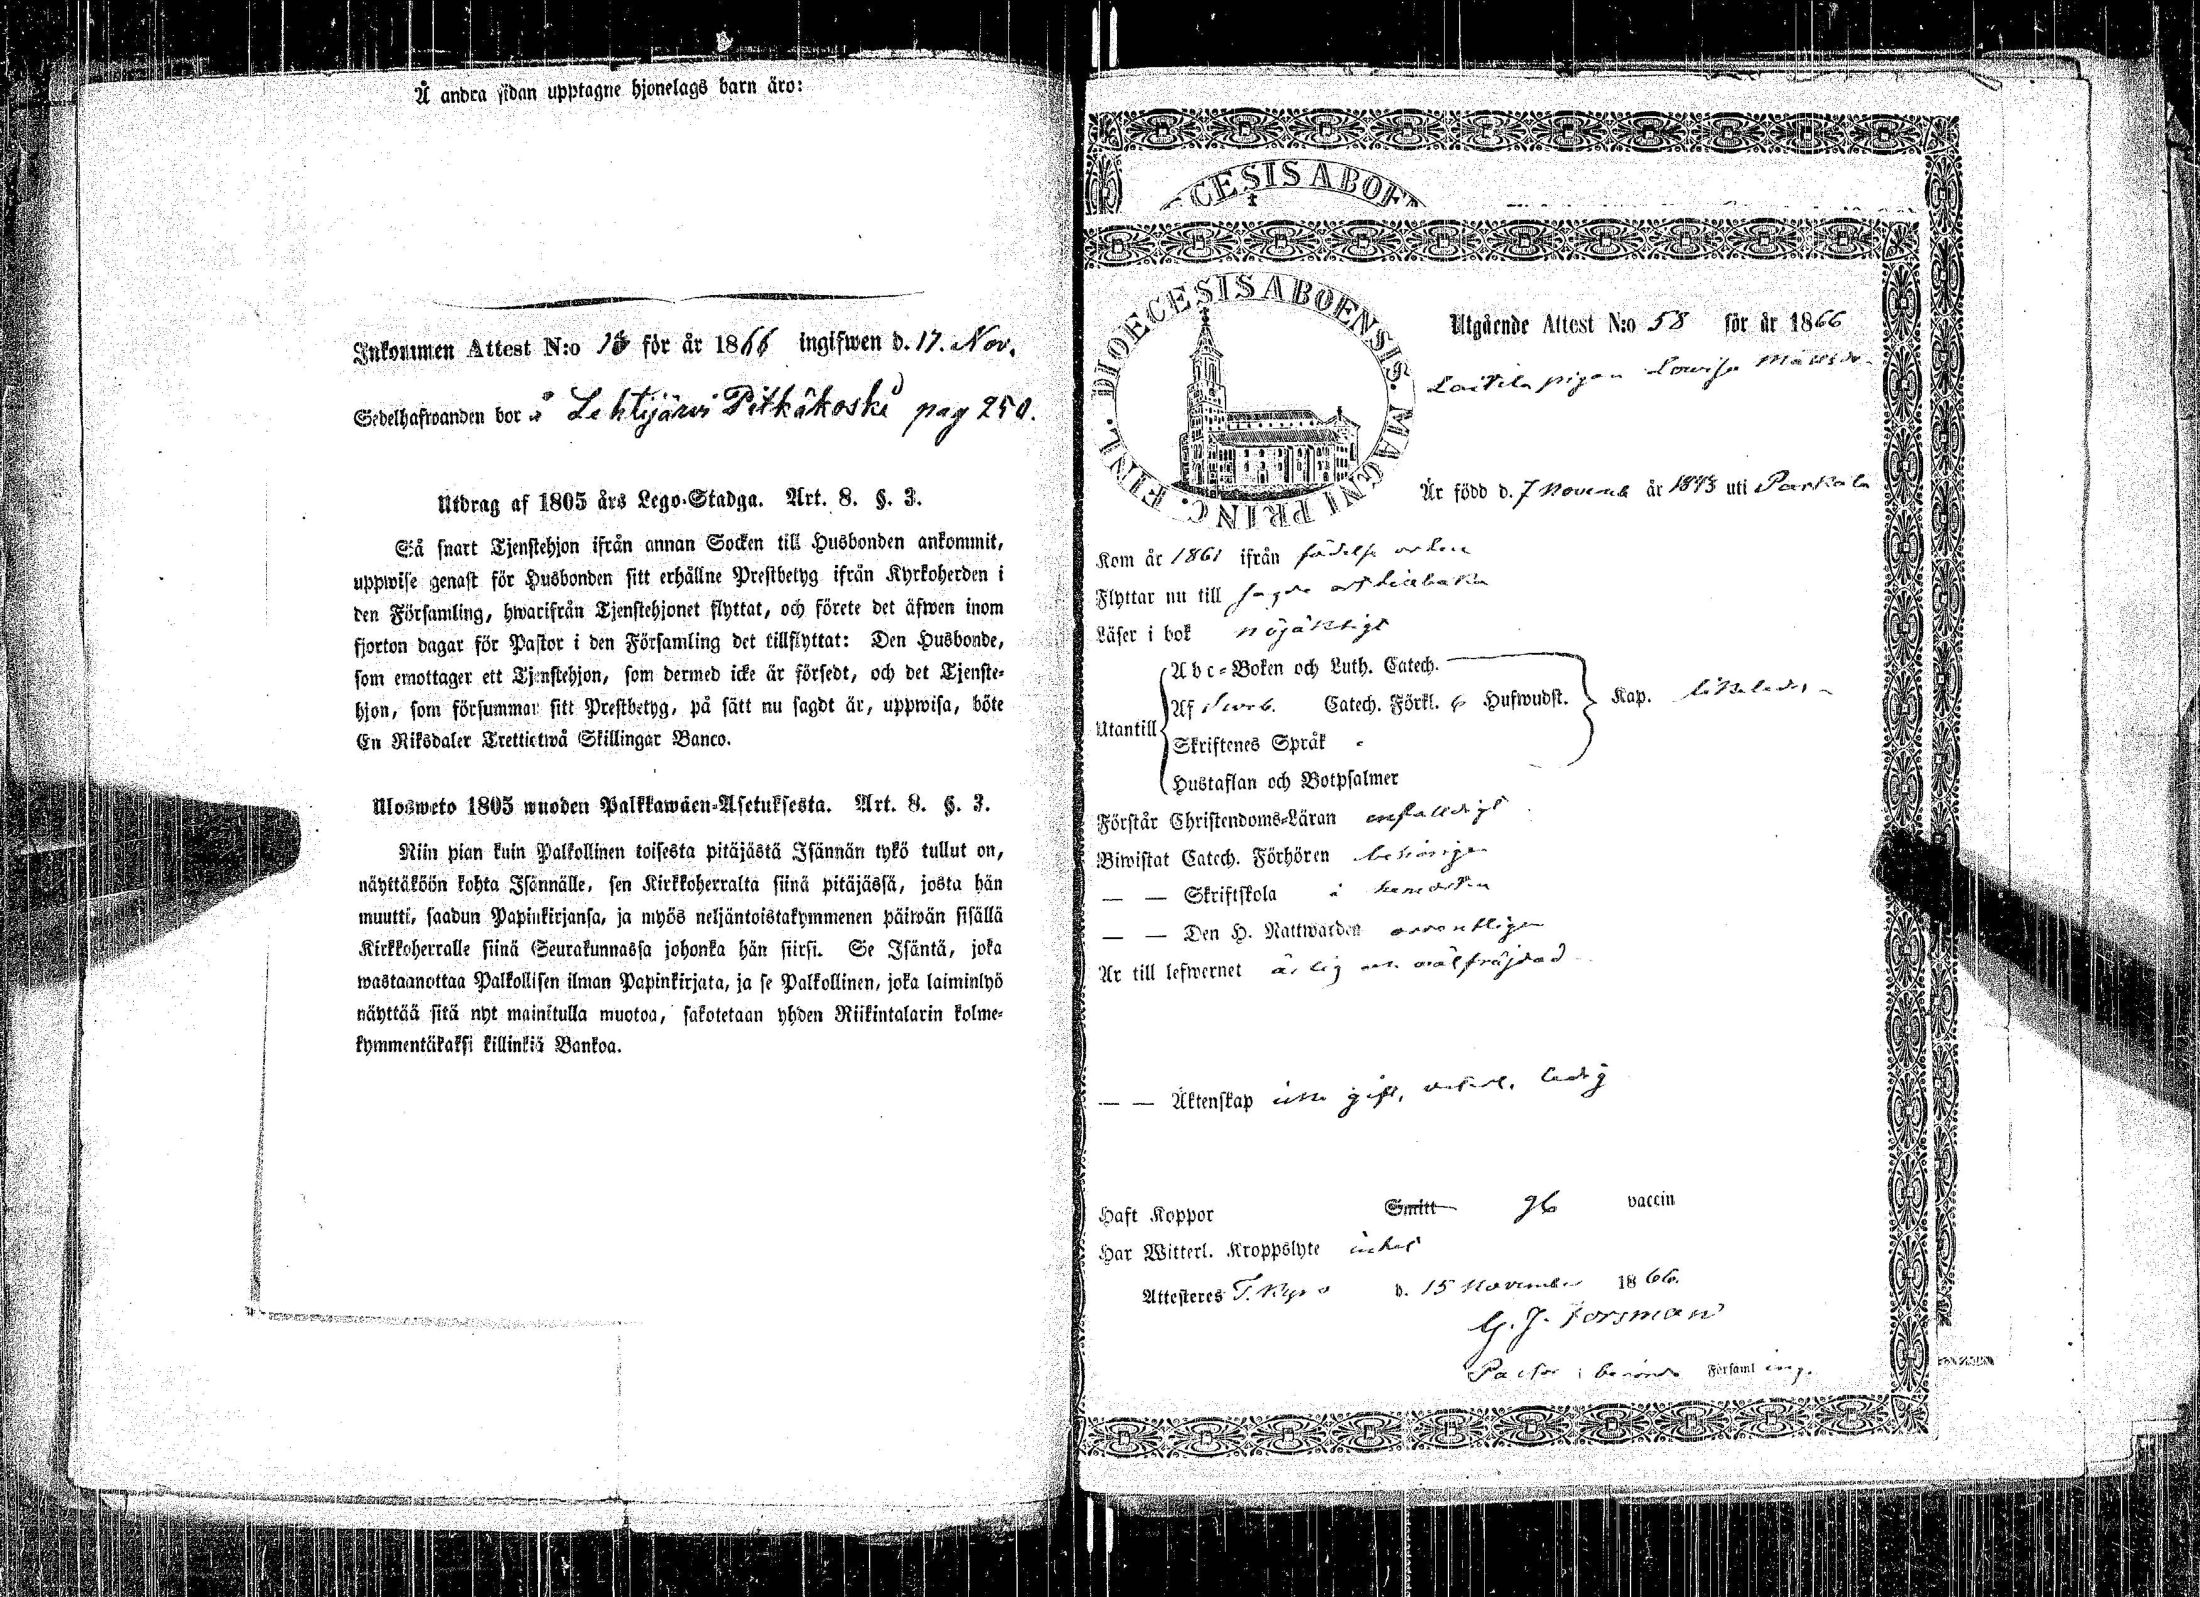 Å andra sidan upptagne hjonelags barn äro:
Inkommen Attest N:o för år 1866 ingifwen d. 17. Nov.
Sedelhafwanden bor å Lehtijärvi Pitkäkoski pag 250.
Utdrag af 1805 års Lego-Stadga. Art. 8. §. 3.
Så snart Tjenstehjon ifrån annan Socken till Husbonden ankommit,
uppwise genast för Husbonden sitt erhållne Prestbetyg ifrån Kyrkoherden i
den Församling, hwarifrån Tjenstehjonet flyttat, och förete det äfwen inom
fjorton dagar för Pastor i den Församling det tillflyttat: Den Husbonde,
som emottager ett Tjenstehjon, som dermed icke är försedt, och det Tjenste-
hjon, som försummar sitt Prestbetyg, på sätt nu sagdt är, uppwisa, böte
En Riksdaler Trettiotwå Skillingar Banco.
Ulosweto 1805 wuoden Palkkawäen-Asetuksesta. Art. 8. §. 3.
Niin pian kuin Palkollinen toisesta pitäjästä Isännän tykö tullut on,
näyttäköön kohta Isännälle, sen Kirkkoherralta siinä pitäjässä, josta hän
muutti, saadun Papinkirjansa, ja myös neljäntoistakymmenen päiwän sisällä
Kirkkoherralle siinä Seurakunnassa johonka hän siirsi. Se Isäntä, joka
wastaanottaa Palkollisen ilman Papinkirjata, ja se Palkollinen, joka laiminlyö
näyttää sitä nyt mainitulla muotoa, sakotetaan yhden Riikintalarin kolme-
kymmentäkaksi killinkiä Bankoa.
CESIS ABOE
DIOECESIS ABOENSIS. MAGNI PRINC. FINL.
Utgående Attest N:o 58 för år 1866
Laitila pigan Lovisa Mattsdr
Är född d. 7 Novemb år 1843 uti Parkano
Kom år 1861 ifrån födelse orten
Flyttar nu till
Läser i bok nöjaktigt
Utantill
Abc-Boken och Luth. Catech.
Af Sweb. Catech. Förkl. 6 Hufwudst. Kap. likaledes
Skriftenes Språk
Hustaflan och Botpsalmer
Förstår Christendoms-Läran enfaldigt
Biwistat Catech. Förhören behörigen
— — Skriftskola å hemorten
— — Den H. Nattwarden ordentligen
Är till lefwernet ärlig och wälfräjdad
— — Äktenskap icke gift, ledig
Haft Koppor Smitt vaccin
Har Witterl. Kroppslyte intet
Attesteres T. Kyro d. 15 November 1866.
G. J. Forsman
Pastor i berörde Församling.